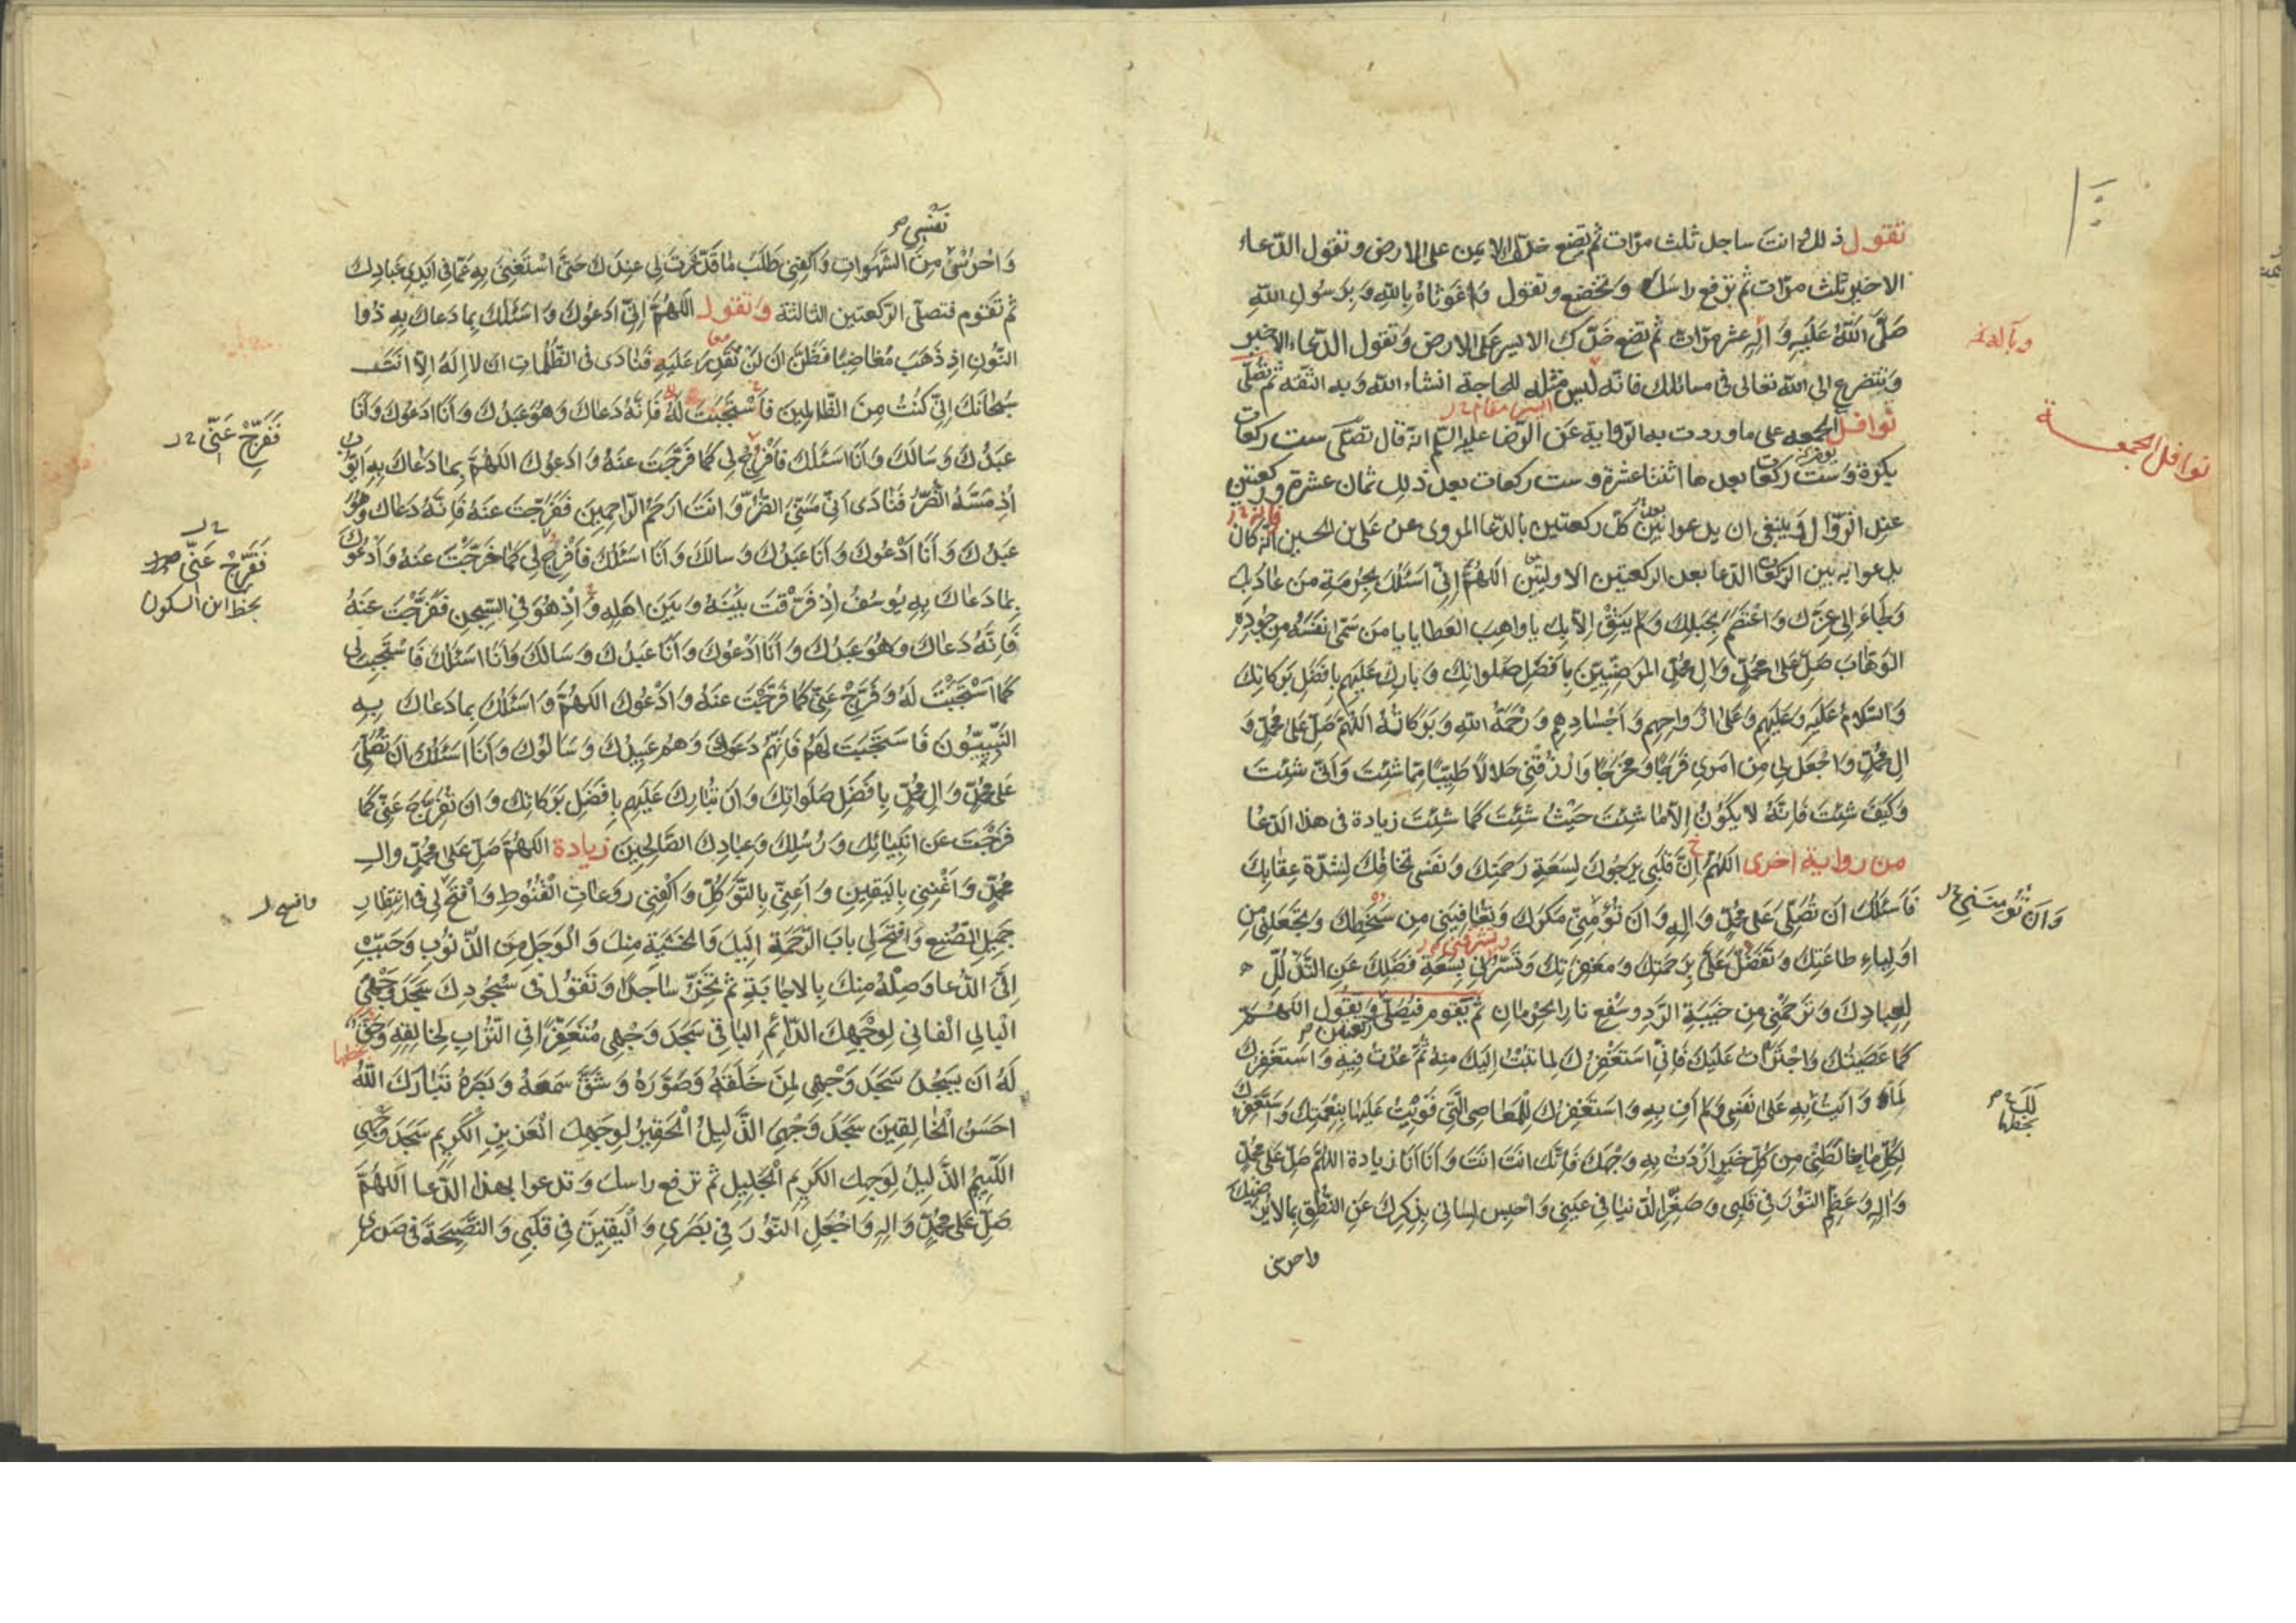 تقول ذلك وانت ساجد ثلث مرّات ثم تضع خدّك الايمن على الارض وتقول الدّعاء
الاخير ثلث مرّات ثم ترفع راسك وتخضع وتقول وَاغَوْثاهُ بِاللّهِ وَبِرَسُولِ اللّهِ
صَلَّى اللّهُ عَلَيْهِ وَالِهِ عشر مرّات ثم تضع خدّك الايسر على الارض وتقول الدّعاء الاخير
وبآله
وتتضرع الى اللّه تعالى فى مسائلك فانه ليس مثله للحاجة انشاء اللّه وبه الثقه ثم تصلّى
نوافل الجمعه على ما وردت به الرّواية عن الرّضا عليه السّلم انّه قال تصلّى ست ركعات
نوافل الجمعة
بكرة وست ركعات بعدها اثنتا عشرة وست ركعات بعد ذلك ثمان عشرة وركعتين
عند الزّوال وينبغى ان يدعوا بين كلّ ركعتين بالدّعا المروى عن على بن الحسين انّه كان
يدعوا به بين الركعات الدّعا بعد الركعتين الاوليتين اَللّهُمَّ اِنّى اَسْئَلُكَ بِحُرْمَةِ مَنْ عاذَ بِكَ
وَلَجَاءَ اِلى عِزِّكَ وَاعْتَصَمَ بِحَبْلِكَ وَلَمْ يَثِقْ اِلاّ بِكَ يا واهِبَ العَطايا يا مَنْ سَمّى نَفْسَهُ مِنْ جُودِهِ
الوَهّابَ صَلِّ عَلى مُحَمَّدٍ وَالِ مُحَمَّدٍ المَرْضِيّينَ بِاَفْضَلِ صَلَواتِكَ وَبارِكْ عَلَيْهِمْ بِاَفْضَلِ بَرَكاتِكَ
وَالسَّلامُ عَلَيْهِ وَعَلَيْهِمْ وَعَلى اَرْواحِهِمْ وَاَجْسادِهِمْ وَرَحْمَةُ اللّهِ وَبَرَكاتُهُ اَللّهُمَّ صَلِّ عَلى مُحَمَّدٍ وَ
الِ مُحَمَّدٍ وَاجْعَلْ لى مِنْ اَمْرى فَرَجًا وَمَخْرَجًا وَارْزُقْنى حَلالاً طَيِّبًا مِمّا شِئْتَ وَاَنّى شِئْتَ
وَكَيْفَ شِئْتَ فَاِنَّهُ لا يَكُونُ اِلاّ ما شِئْتَ حَيْثُ شِئْتَ كَما شِئْتَ زيادة فى هذا الدّعا
من رواية اخرى اَللّهُمَّ اِنَّ قَلْبى يَرْجُوكَ لِسَعَةِ رَحْمَتِكَ وَنَفْسى تَخافُكَ لِشِدَّةِ عِقابِكَ
فَاَسْئَلُكَ اَنْ تُصَلِّىَ عَلى مُحَمَّدٍ وَالِهِ وَاَنْ تُؤْمِنّى مَكْرَكَ وَتُعافِيَنى مِنْ سَخَطِكَ وَتَجْعَلَنى مِنْ
وَاَنْ تُؤمِنَنى
اَوْلِياءِ طاعَتِكَ وَتَفَضَّلْ عَلَىَّ بِرَحْمَتِكَ وَمَغْفِرَتِكَ وَتَسُرَّنى بِسَعَةِ فَضْلِكَ عَنِ التَّذَلُّلِ
لِعِبادِكَ وَتَرْحَمَنى مِنْ خَيْبَةِ الرَّدِّ وَسَفْعِ نارِ الحِرْمانِ ثم يقوم فيصلّى ركعتين ويقول اللّهُمَّ
كَما عَصَيْتُكَ وَاجْتَرَأْتُ عَلَيْكَ فَاِنّى اَسْتَغْفِرُكَ لِما تُبْتُ اِلَيْكَ مِنْهُ ثُمَّ عُدْتُ فيهِ وَاَسْتَغْفِرُكَ
لِما وَاَيْتُ بِهِ عَلى نَفْسى وَلَمْ اَفِ بِهِ وَاَسْتَغْفِرُكَ لِلْمَعاصِى الَّتى قَوِيتُ عَلَيْها بِنِعْمَتِكَ وَاَسْتَغْفِرُكَ
لِكُلِّ ما خالَطَنى مِنْ كُلِّ خَيْرٍ اَرَدْتُ بِهِ وَجْهَكَ فَاِنَّكَ اَنْتَ اَنْتَ وَاَنَا اَنَا زيادة اللّهُمَّ صَلِّ عَلى مُحَمَّدٍ
وَالِهِ وَعَظِّمِ النُّورَ فى قَلْبى وَصَغِّرِ الدُّنْيا فى عَيْنى وَاحْبِسْ لِسانى بِذِكْرِكَ عَنِ النُّطْقِ بِما لا يُرْضيكَ
واحرسنى
نَفْسى
وَاحْرُسْنى مِنَ الشَّهَواتِ وَاكْفِنى طَلَبَ ما قَدَّرْتَ لى عِنْدَكَ حَتّى اَسْتَغْنِىَ بِهِ عَمّا فى اَيْدى عِبادِكَ
ثم تقوم فتصلّى الركعتين الثالثة وتقول اَللّهُمَّ اِنّى اَدْعُوكَ وَاَسْئَلُكَ بِما دَعاكَ بِهِ ذُوا
النُّونِ اِذْ ذَهَبَ مُغاضِبًا فَظَنَّ اَنْ لَنْ نَقْدِرَ عَلَيْهِ فَنادى فِى الظُّلُماتِ اَنْ لا اِلهَ اِلاّ اَنْتَ
سُبْحانَكَ اِنّى كُنْتُ مِنَ الظّالِمينَ فَاسْتَجَبْتَ لَهُ فَاِنَّهُ دَعاكَ وَهُوَ عَبْدُكَ وَاَنَا اَدْعُوكَ وَاَنَا
فَفَرِّجْ عَنّى
عَبْدُكَ وَسَالَكَ وَاَنَا اَسْئَلُكَ فَافْرُجْ لى كَما فَرَّجْتَ عَنْهُ وَاَدْعُوكَ اللّهُمَّ بِما دَعاكَ بِهِ اَيُّوبُ
اِذْ مَسَّهُ الضُّرُّ فَنادى اَنّى مَسَّنِىَ الضُّرُّ وَاَنْتَ اَرْحَمُ الرّاحِمينَ فَفَرَّجْتَ عَنْهُ فَاِنَّهُ دَعاكَ وَهُوَ
عَبْدُكَ وَاَنَا اَدْعُوكَ وَاَنَا عَبْدُكَ وَسالَكَ وَاَنَا اَسْئَلُكَ فَافْرُجْ لى كَما فَرَّجْتَ عَنْهُ وَاَدْعُوكَ
فَفَرِّجْ عَنّى
بخط ابن السكون
بِما دَعاكَ بِهِ يُوسُفُ اِذْ فَرَّقْتَ بَيْنَهُ وَبَيْنَ اَهْلِهِ وَاِذْ هُوَ فِى السِّجْنِ فَفَرَّجْتَ عَنْهُ
فَاِنَّهُ دَعاكَ وَهُوَ عَبْدُكَ وَاَنَا اَدْعُوكَ وَاَنَا عَبْدُكَ وَسَالَكَ وَاَنَا اَسْئَلُكَ فَاسْتَجِبْ لى
كَما اسْتَجَبْتَ لَهُ وَفَرِّجْ عَنّى كَما فَرَّجْتَ عَنْهُ وَاَدْعُوكَ اللّهُمَّ وَاَسْئَلُكَ بِما دَعاكَ بِهِ
النَّبِيُّونَ فَاسْتَجَبْتَ لَهُمْ فَاِنَّهُمْ دَعَوْكَ وَهُمْ عَبيدُكَ وَسَالُوكَ وَاَنَا اَسْئَلُكَ اَنْ تُصَلِّىَ
عَلى مُحَمَّدٍ وَالِ مُحَمَّدٍ بِاَفْضَلِ صَلَواتِكَ وَاَنْ تُبارِكَ عَلَيْهِمْ بِاَفْضَلِ بَرَكاتِكَ وَاَنْ تُفَرِّجَ عَنّى كَما
فَرَّجْتَ عَنْ اَنْبِيائِكَ وَرُسُلِكَ وَعِبادِكَ الصّالِحينَ زيادة اللّهُمَّ صَلِّ عَلى مُحَمَّدٍ وَالِ
مُحَمَّدٍ وَاَغْنِنى بِاليَقينِ وَاَعِنّى بِالتَّوَكُّلِ وَاكْفِنى رَوْعاتِ القُنُوطِ وَافْتَحْ لى فِى انْتِظارِ
وافسح
جَميلِ الصُّنْعِ وَافْتَحْ لى بابَ الرَّحْمَةِ اِلَيْكَ وَالخَشْيَةِ مِنْكَ وَالوَجَلِ مِنَ الذُّنُوبِ وَحَبِّبْ
اِلَىَّ الدُّعا وَصِلْهُ مِنْكَ بِالاِجابَةِ ثم تخرّ ساجدًا وتقول فى سجودك سَجَدَ وَجْهِىَ
البالِى الفانى لِوَجْهِكَ الدّائِمِ الباقى سَجَدَ وَجْهى مُتَعَفِّرًا فِى التُّرابِ لِخالِقِهِ وَحَقٌّ
لَهُ اَنْ يَسْجُدَ سَجَدَ وَجْهى لِمَنْ خَلَقَهُ وَصَوَّرَهُ وَشَقَّ سَمْعَهُ وَبَصَرَهُ تَبارَكَ اللّهُ
اَحْسَنُ الخالِقينَ سَجَدَ وَجْهِىَ الذَّليلُ الحَقيرُ لِوَجْهِكَ العَزيزِ الكَريمِ سَجَدَ وَجْهِىَ
اللَّئيمُ الذَّليلُ لِوَجْهِكَ الكَريمِ الجَليلِ ثم ترفع راسك وتدعوا بهذا الدّعا اَللّهُمَّ
صَلِّ عَلى مُحَمَّدٍ وَالِهِ وَاجْعَلِ النُّورَ فى بَصَرى وَاليَقينَ فى قَلْبى وَالنَّصيحَةَ فى صَدْرى